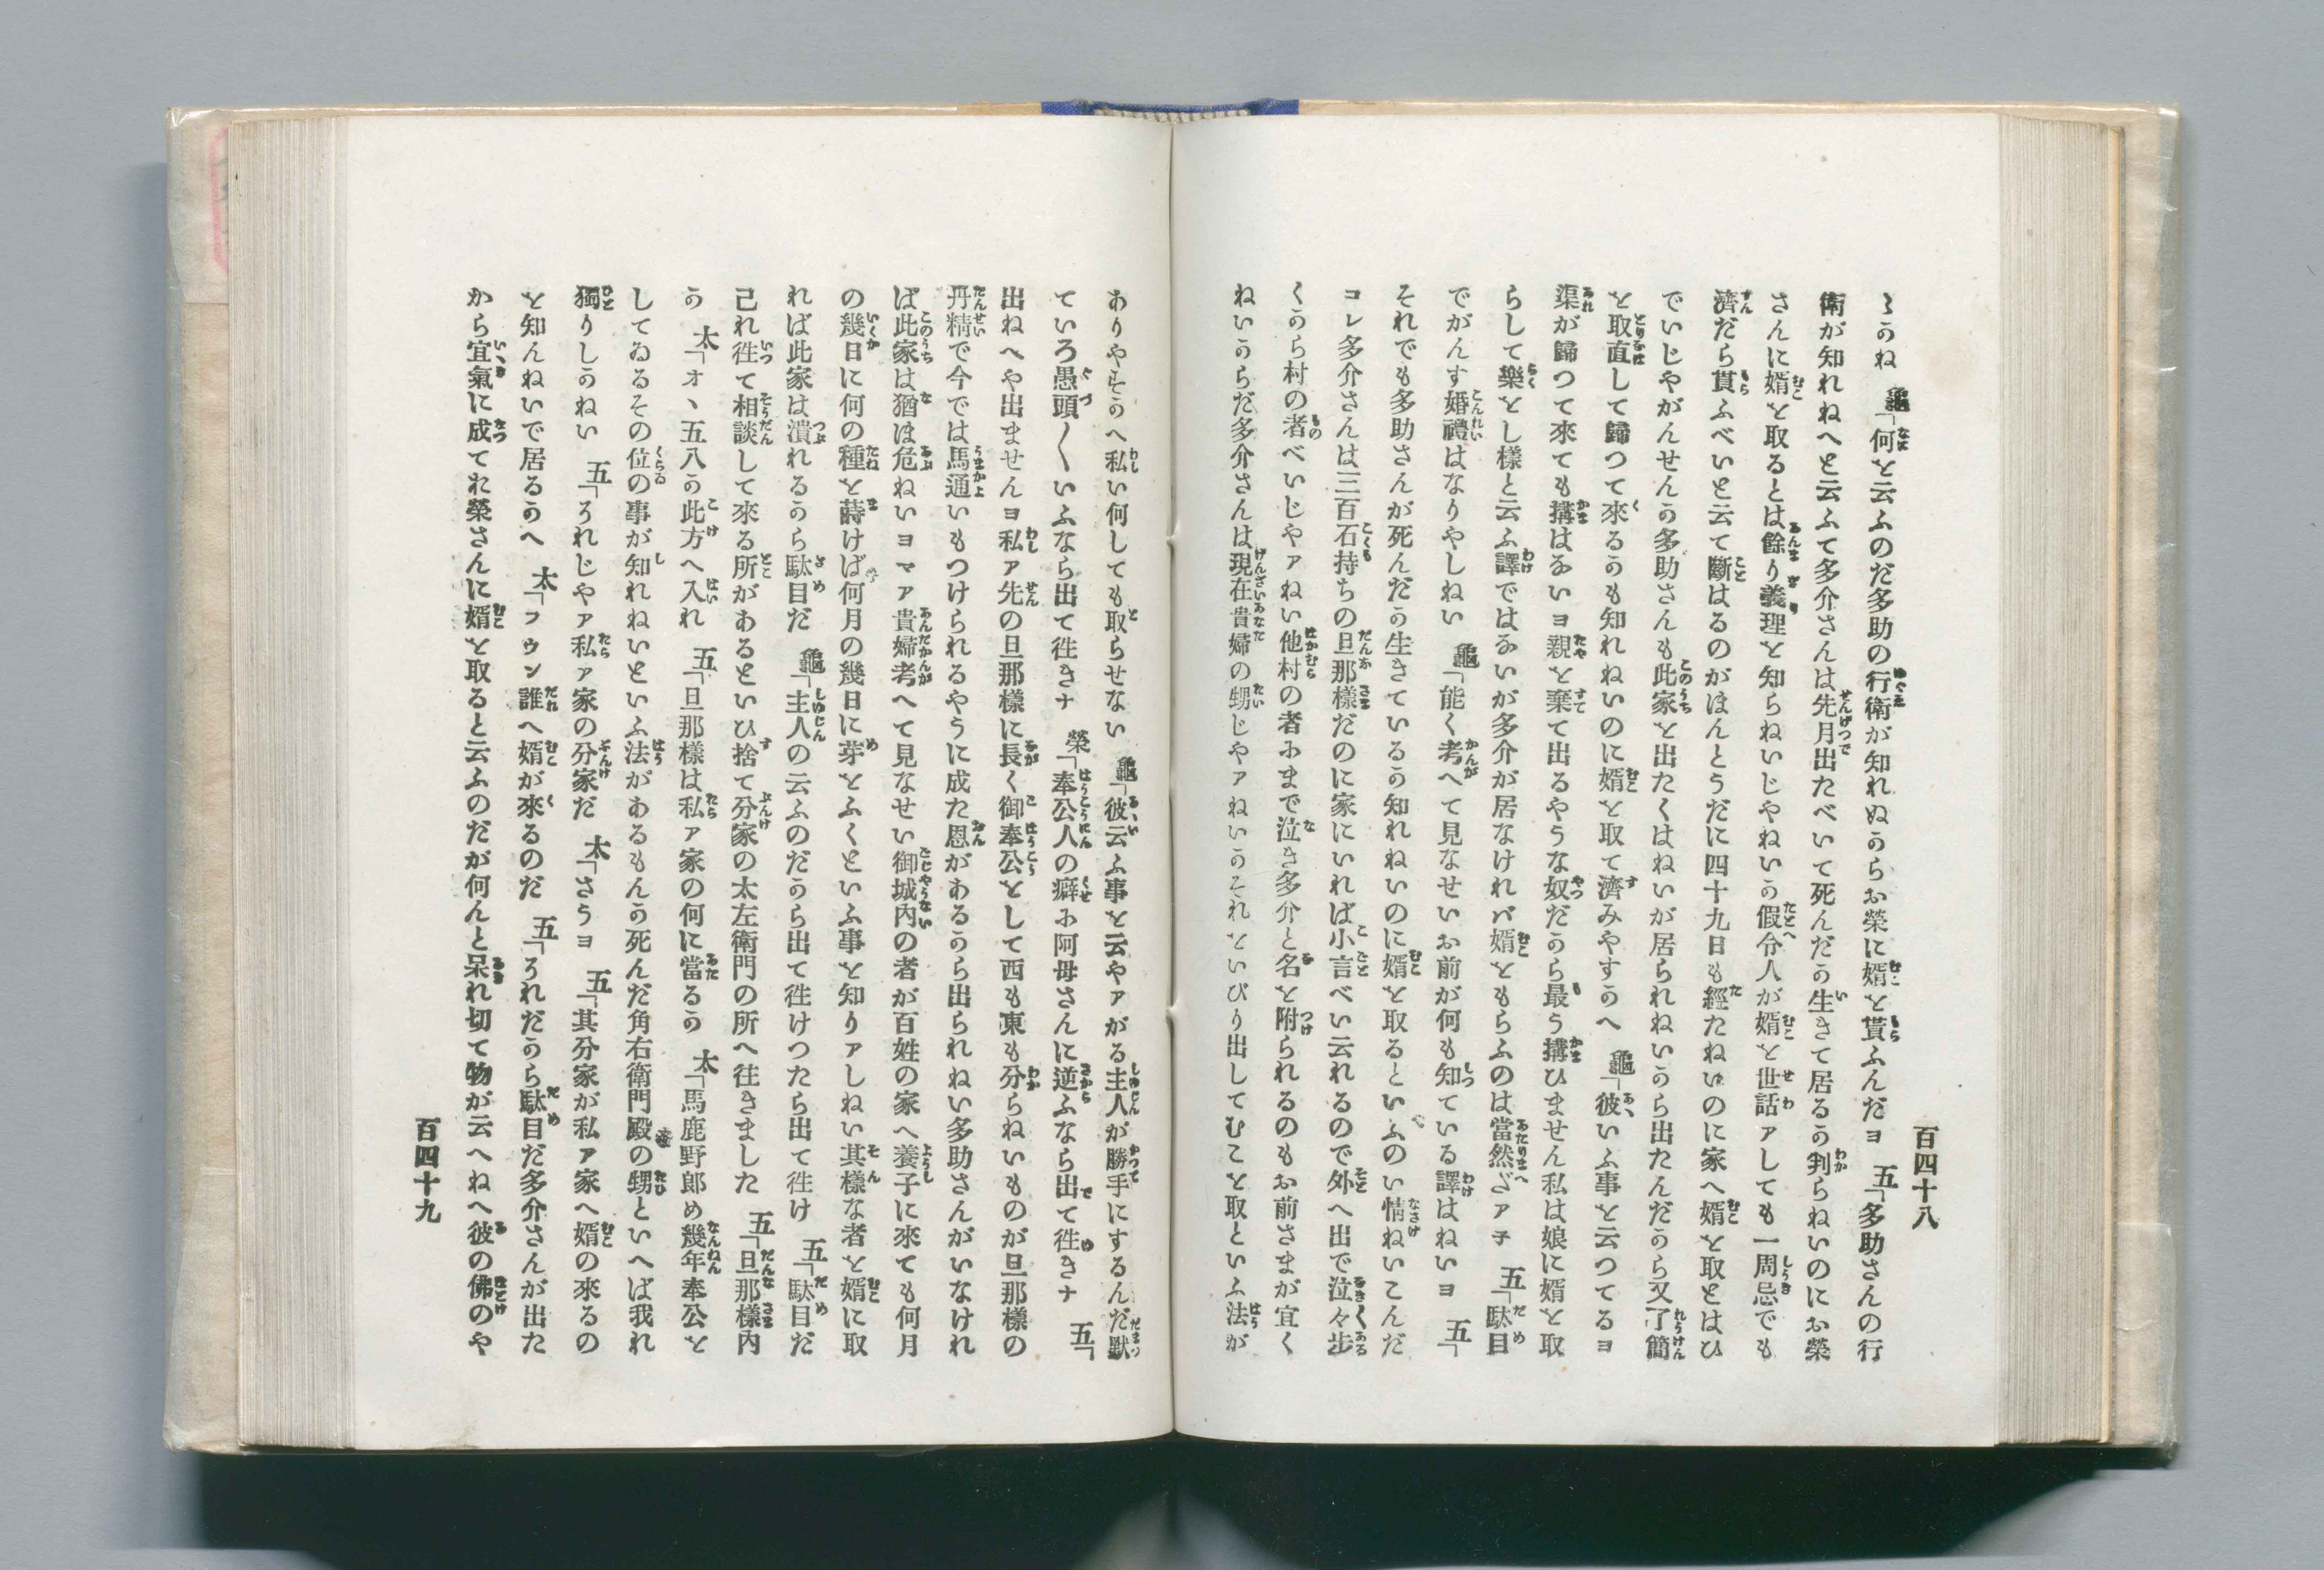 百四十八
ゝうね　龜「何を云ふのだ多助の行衛が知れぬうらお榮に婿を貰ふんだヨ　五「多助さんの行
衛が知れねへと云ふて多介さんは先月出たべいて死んだう生きて居るう判らねいのにお榮
さんに婿を取るとは餘り義理を知らねいじやねいう假令人が婿を世話アしても一周忌でも
濟だら貰ふべいと云て斷はるのがほんとうだに四十九日も經たねいのに家へ婿を取とはひ
でいじやがんせんう多助さんも此家を出たくはねいが居られねいうら出たんだうら又了簡
を取直して歸つて來るのも知れねいのに婿を取て濟みやすうへ　龜「彼いふ事を云つてるヨ
渠が歸つて來ても搆はあいヨ親を棄て出るやうな奴だうら最う搆ひません私は娘に婿を取
らして樂をし樣と云ふ譯ではあいが多介が居なけれバ婿をもらふのは當然ざアネ　五「駄目
でがんす婚禮はなりやしねい　龜「能く考へて見なせいお前が何も知つている譯はねいヨ　五「
それでも多助さんが死んだう生きているう知れねいのに婿を取るといふのい情ねいこんだ
コレ多介さんは三百石持ちの旦那樣だのに家にいれば小言べい云れるので外へ出で泣々步
くうら村の者べいじやアねい他村の者おまで泣き多介と名を附られるのもお前さまが宜く
ねいうらだ多介さんは現在貴婦の甥じやアねいうそれをいびり出してむこを取といふ法が
ありやすうへ私い何しても取らせない　龜「彼云ふ事を云やアがる主人が勝手にするんだ默
ていろ愚頭〱いふなら出て徃きナ　榮「奉公人の癖お阿母さんに逆ふなら出て徃きナ　五「
出ねへや出ませんヨ私ア先の旦那樣に長く御奉公をして西も東も分らねいものが旦那樣の
丹精で今では馬通いもつけられるやうに成た恩があるうら出られねい多助さんがいなけれ
ば此家は猶ほ危ねいヨマア貴婦考へて見なせい御城內の者が百姓の家へ養子に來ても何月
の幾日に何の種を蒔けば何月の幾日に芽をふくといふ事を知りアしねい其樣な者を婿に取
れば此家は潰れるうら駄目だ　龜「主人の云ふのだうら出て徃けつたら出て徃け　五「駄目だ
己れ徃て相談して來る所があるといひ捨て分家の太左衛門の所へ往きました　五「旦那樣內
う　太「オヽ五八う此方へ入れ　五「旦那樣は私ア家の何に當るう　太「馬鹿野郎め幾年奉公を
してゐるその位の事が知れねいといふ法があるもんう死んだ角右衛門殿の甥といへば我れ
獨りしうねい　五「ろれじやア私ア家の分家だ　太「さうヨ　五「其分家が私ア家へ婿の來るの
を知んねいで居るうへ　太「フウン誰へ婿が來るのだ　五「ろれだうら駄目だ多介さんが出た
から宜氣に成てれ榮さんに婿を取ると云ふのだが何んと呆れ切て物が云へねへ彼の佛のや
百四十九